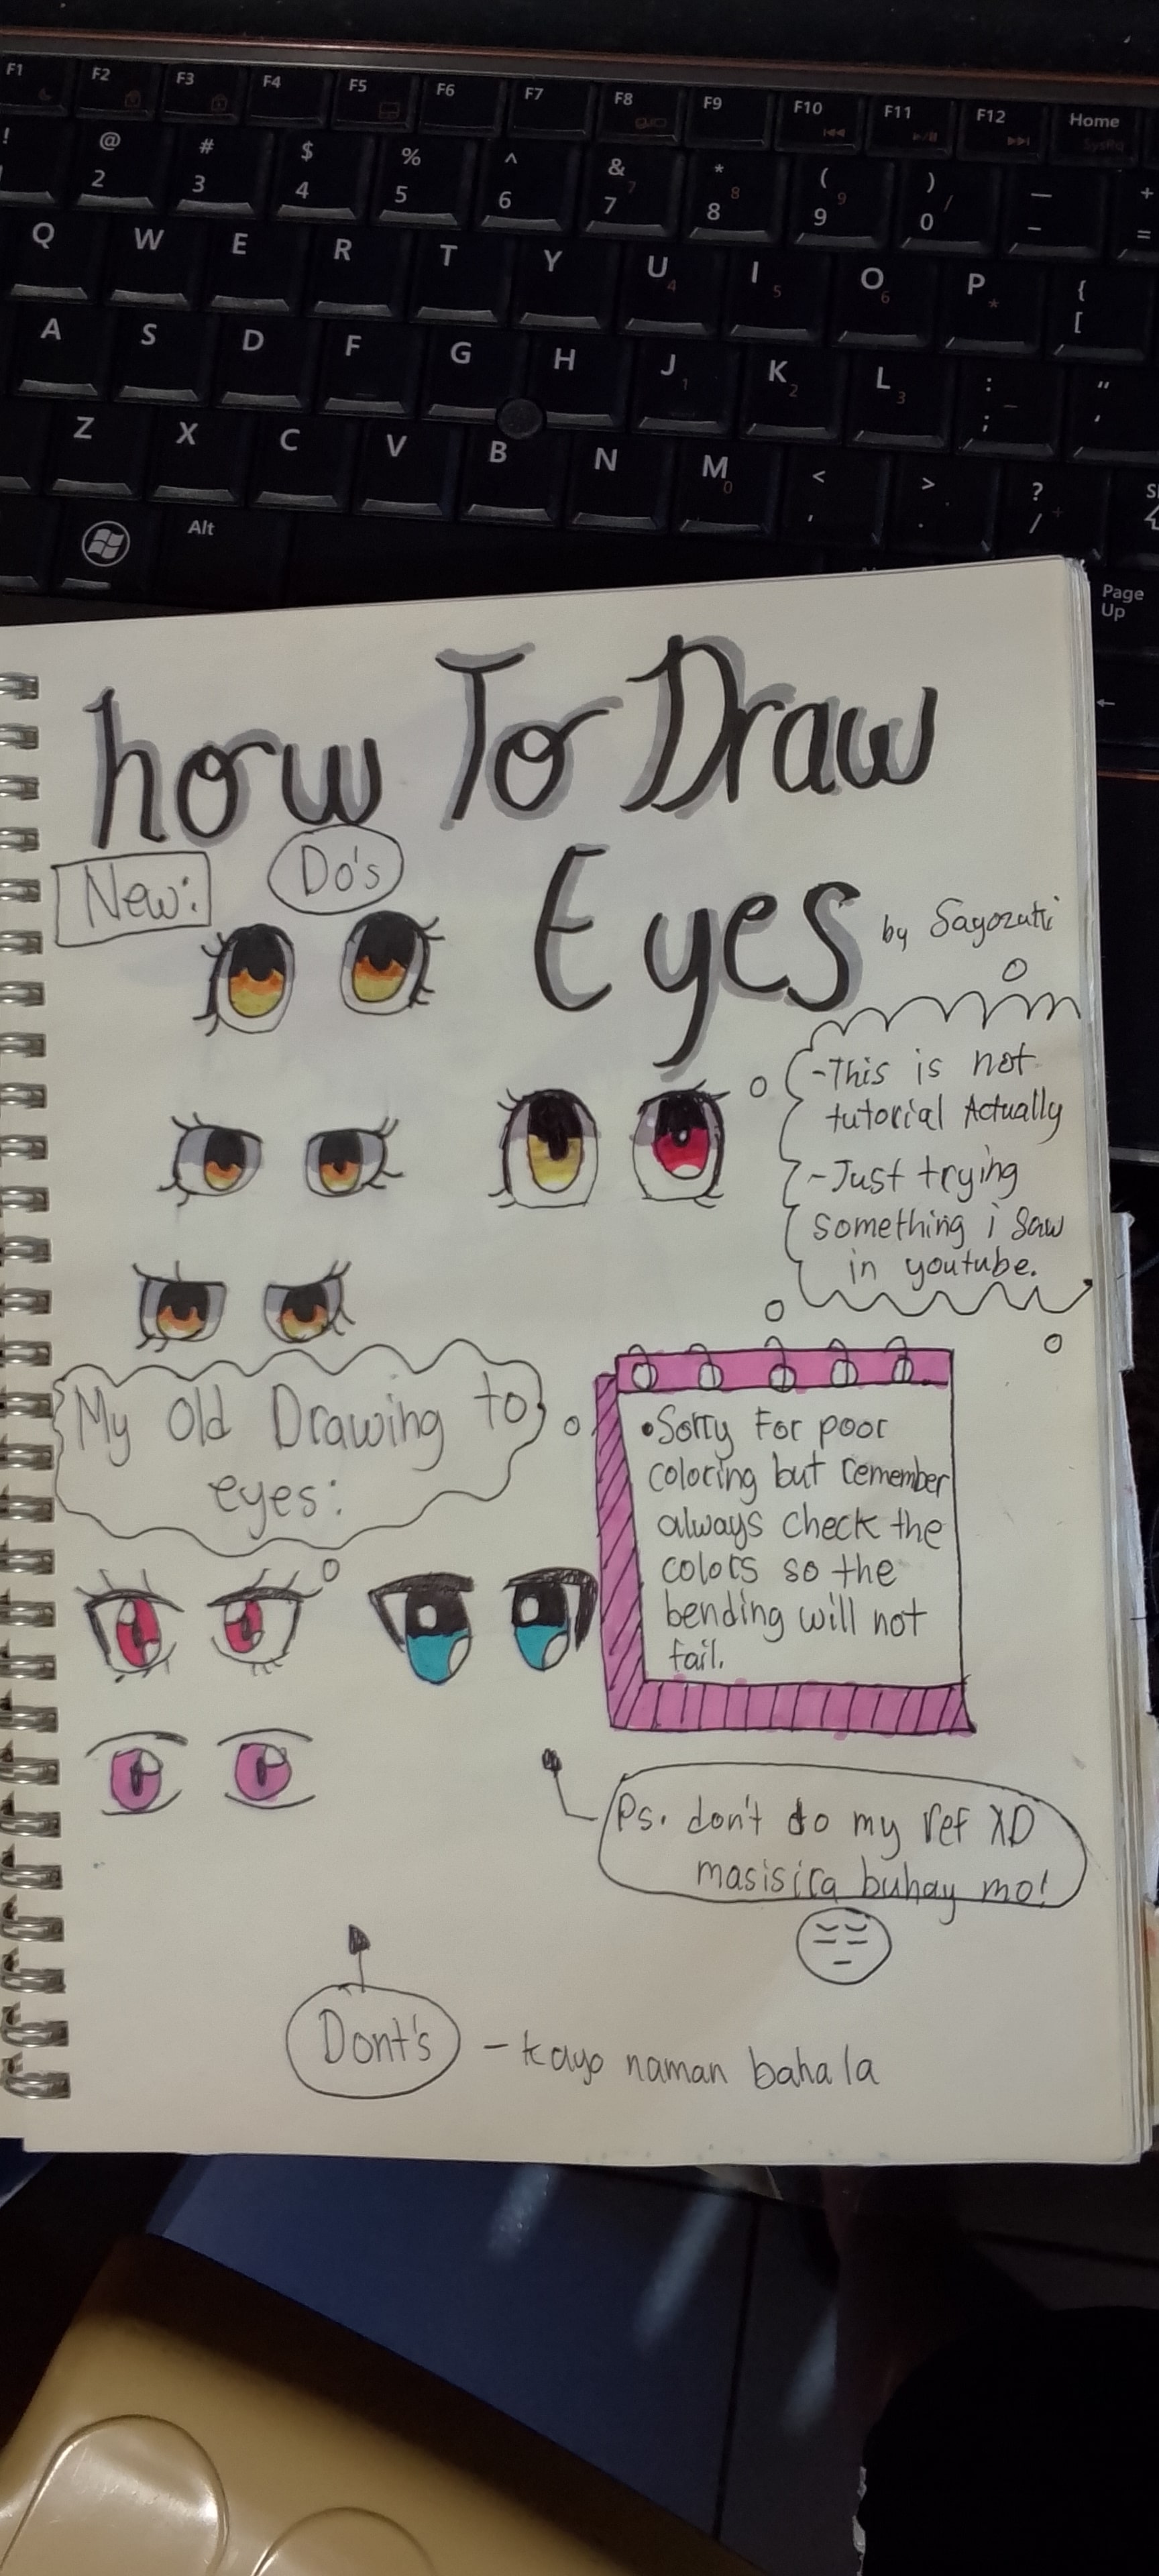 F1 F2 F3 F4 F5 F6 F7 F8 F9 F10 F11 F12 Home
SysRq
! @ 2 # 3 $ 4 % 5 ^ 6 & 7 7 * 8 8 ( 9 9 ) 0 / — - + =
Q W E R T Y U 4 I 5 O 6 P * { [
A S D F G H J 1 K 2 L 3 : ; " '
Z X C V B N M 0 < , > . ? /
Alt
Page
Up
how To Draw
Eyes
by
New:
Do's
-This is not
tutorial Actually
-Just trying
something i saw
in youtube.
My Old Drawing to
eyes:
•Sorry For poor
coloring but remember
always check the
colors so the
bending will not
fail.
Ps. don't do my ref XD
masisira buhay mo!
Dont's - kayo naman bahala